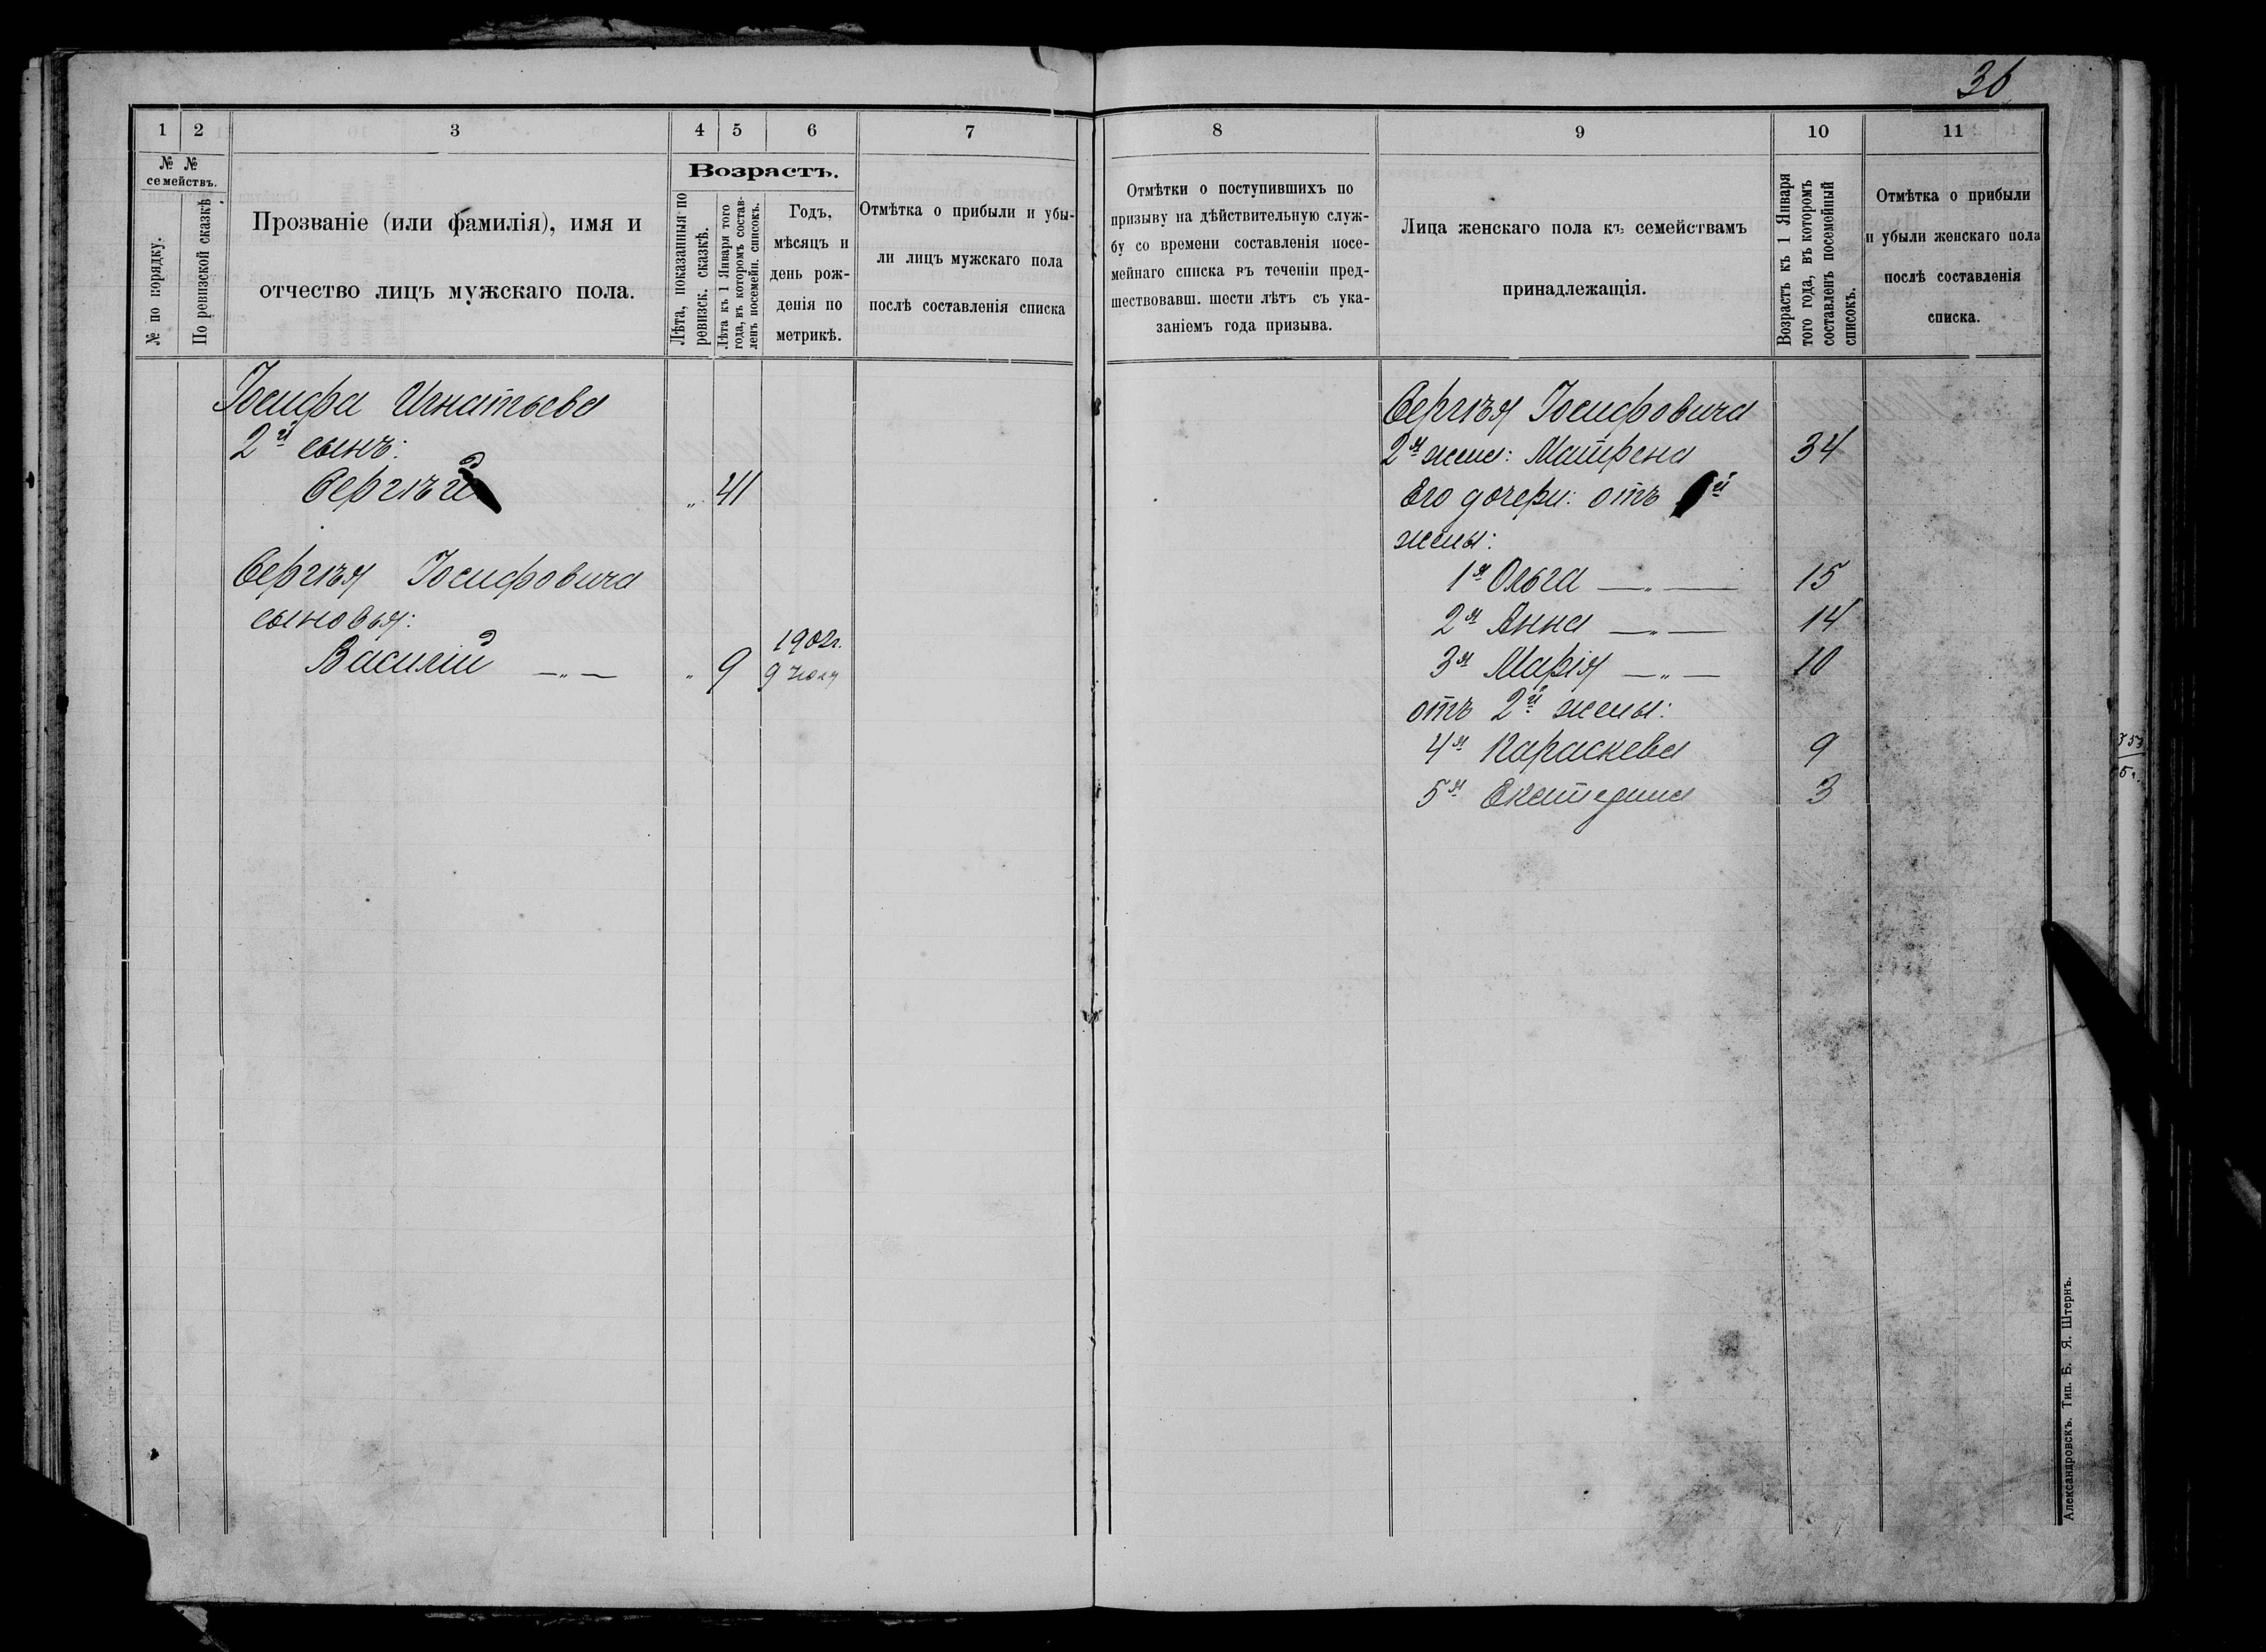 36
1 2 3 4 5 6 7
№ №
семействъ.
№ по порядку.
По ревизской сказкѣ
Прозваніе (или фамилія), имя и
отчество лицъ мужскаго пола.
Возрастъ.
Лѣта, показанныя по
ревизск. сказкѣ.
Лѣта къ 1 Января того
года, въ которомъ состав-
ленъ посемейн. списокъ.
Годъ,
мѣсяцъ и
день рож-
денія по
метрикѣ.
Отмѣтка о прибыли и убы-
ли лицъ мужскаго пола
послѣ составленія списка
Іосифа Игнатьева
2й сынъ:
Сергѣй „ 41
Сергѣя Іосифовича
сыновья:
1902г.
Василій —„— „ 9 9 Іюля
8 9 10 11
Отмѣтки о поступившихъ по
призыву на дѣйствительную служ-
бу со времени составленія посе-
мейнаго списка въ теченіи пред-
шествовавш. шести лѣтъ съ ука-
заніемъ года призыва.
Лица женскаго пола къ семействамъ
принадлежащія.
Возрастъ къ 1 Января
того года, въ которомъ
составленъ посемейный
списокъ.
Отмѣтка о прибыли
и убыли женскаго пола
послѣ составленія
списка.
Сергѣя Іосифовича
2я жена: Матрена 34
Его дочери: отъ 1й
жены:
1я Ольга —„— 15
2я Анна —„— 14
3я Марія —„— 10
отъ 2й жены:
4я Параскева 9
5я Екатерина 3
Александровскъ. Тип. Б. Я. Штернъ.